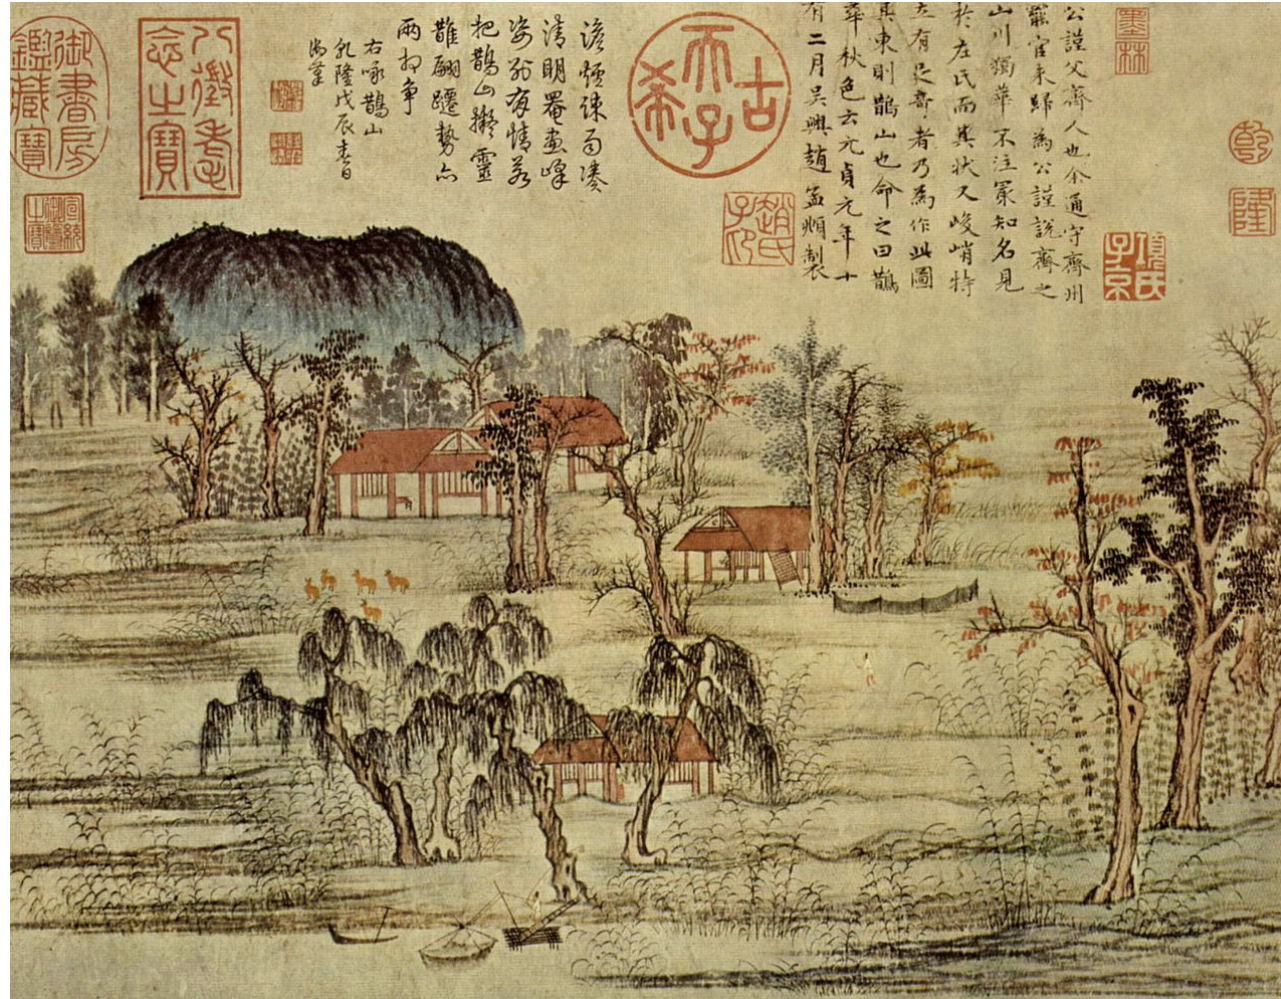 墨林
乾
隆
項氏子京
公謹父齊人也余通守齊州
罷官來歸為公謹說齊之
山川獨華不注冣知名見
於左氏而其狀又峻峭特
立有足奇者乃為作此圖
其東則鵲山也命之曰鵲
華秋色云元貞元年十
有二月吳興趙孟頫製
趙氏子卬
古希天子
淡煙疎雨湊
清明罨畫峰
姿別有情若
把鵲山擬靈
鵲翩躚勢亦
兩相爭
右咏鵲山
乾隆戊辰春日
御筆
八徵耄念之寶
御書房鑑藏寶
宣統御覽之寶